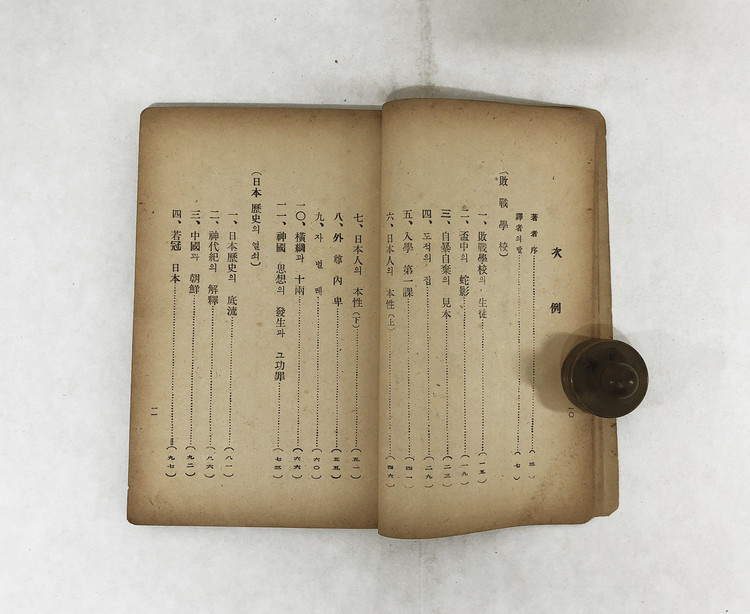 次例
著者序……(三)
譯者의말……(七)
(敗戰學校)
一、敗戰學校의 生徒……(一五)
二、盃中의 蛇影……(一九)
三、自暴自棄의 見本……(二三)
四、도적의 집……(二九)
五、入學 第一課……(四一)
六、日本人의 本性(上)……(四六)
一〇
七、日本人의 本性(下)……(五一)
八、外尊內卑……(五五)
九、자벌레……(六〇)
一〇、橫綱과 十兩……(六六)
一一、神國 思想의 發生과 그功罪……(七三)
(日本 歷史의 열쇠)
一、日本歷史의 底流……(八一)
二、神代紀의 解釋……(八六)
三、中國과 朝鮮……(九二)
四、若冠 日本……(九七)
一一